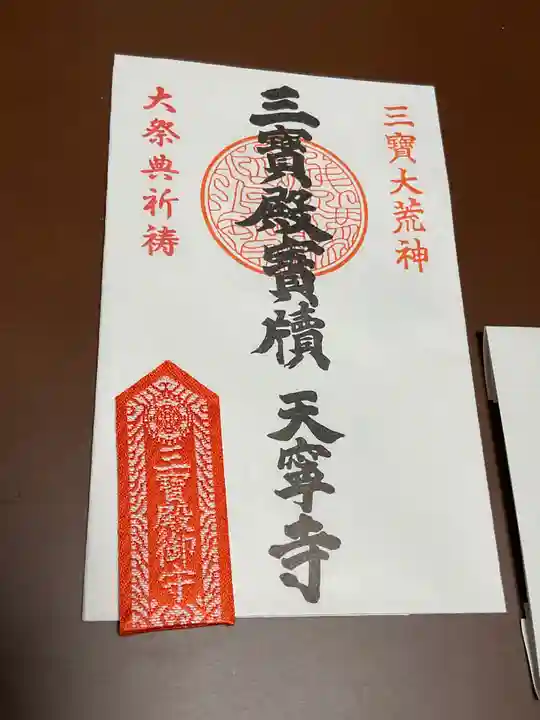 三寶大荒神
三寳殿寳牘 天寧寺
大祭典祈祷
三寶殿御守